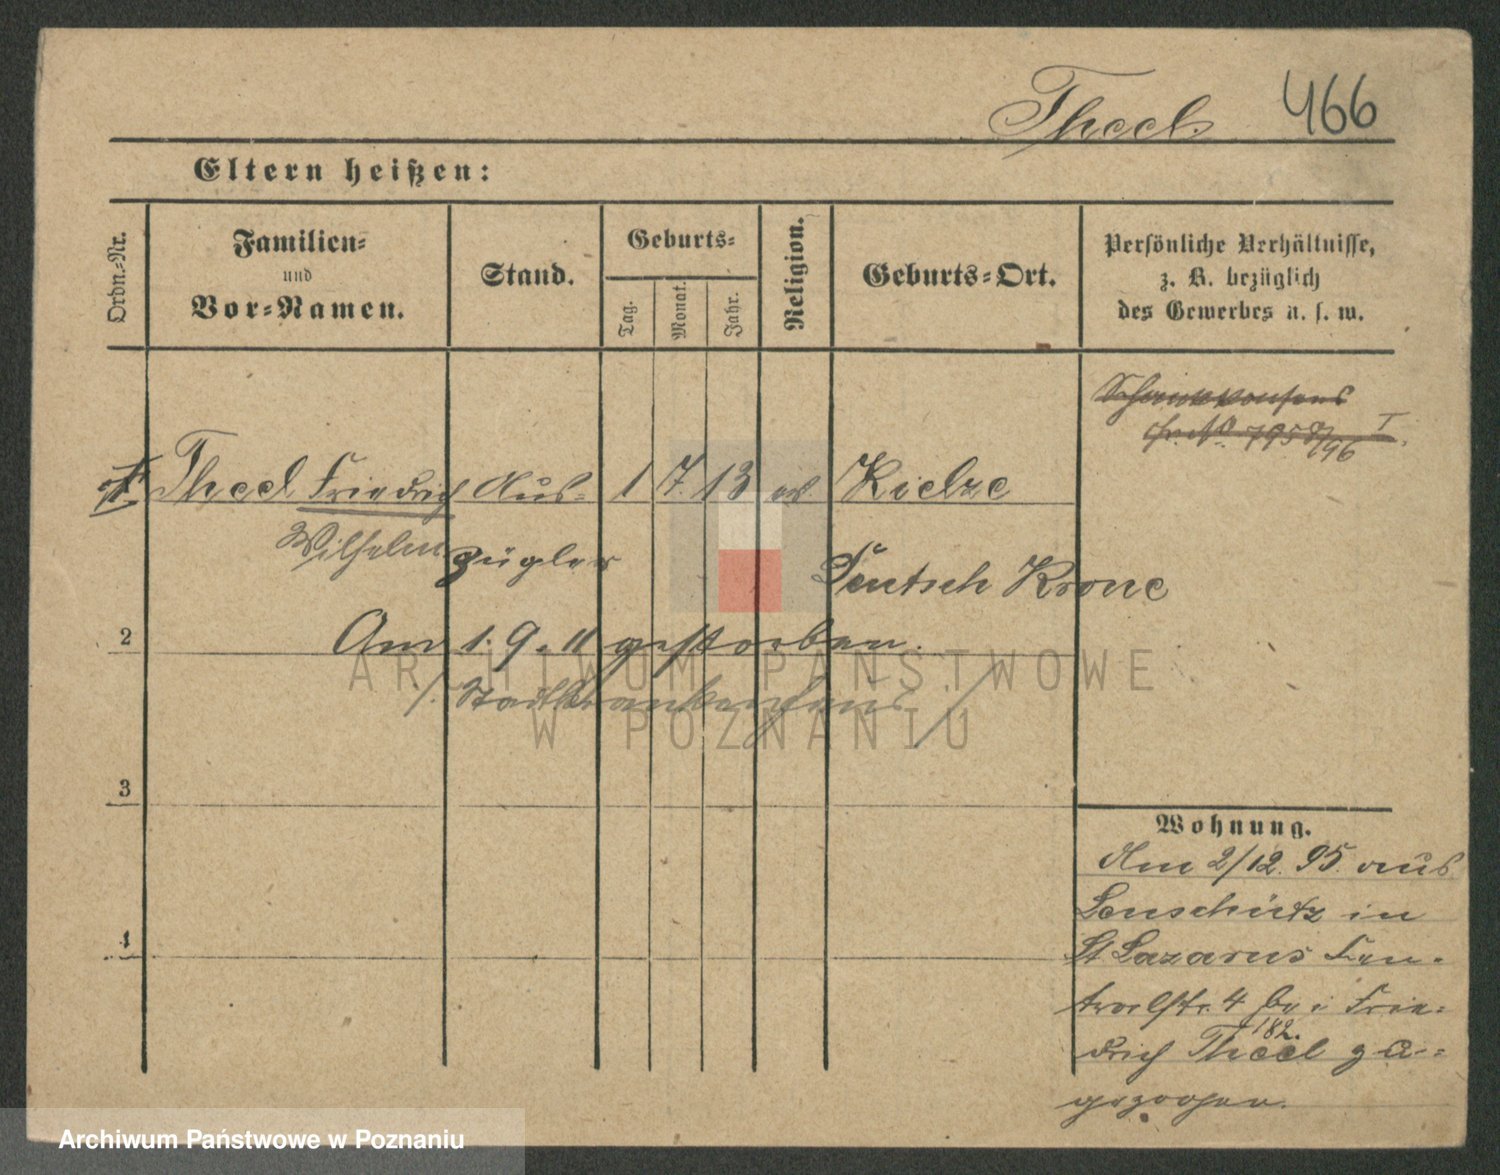 Theel. 466
Eltern heißen:
Ordn.-Nr.
Familien-
und
Vor-Namen.
Stand.
Geburts-
Tag.
Monat.
Jahr.
Religion.
Geburts-Ort.
Persönliche Verhältnisse,
z. B. bezüglich
des Gewerbes u. s. w.
Schankkonsens
I
Theel Friedrich Aus- 1 7. 13 ev Kielze
Wilhelm zügler Deutsch Krone
2 Am 1. 9. 11 gestorben.
/. Stadtkrankenhaus /
3
4
Wohnung.
Am 2/12. 95. aus
Lenschütz in
St Lazarus Cen-
tralstr. 4 bei Frie-
182.
drich Theel zu-
gezogen.
ARCHIWUM PAŃSTWOWE
W POZNANIU
Archiwum Państwowe w Poznaniu